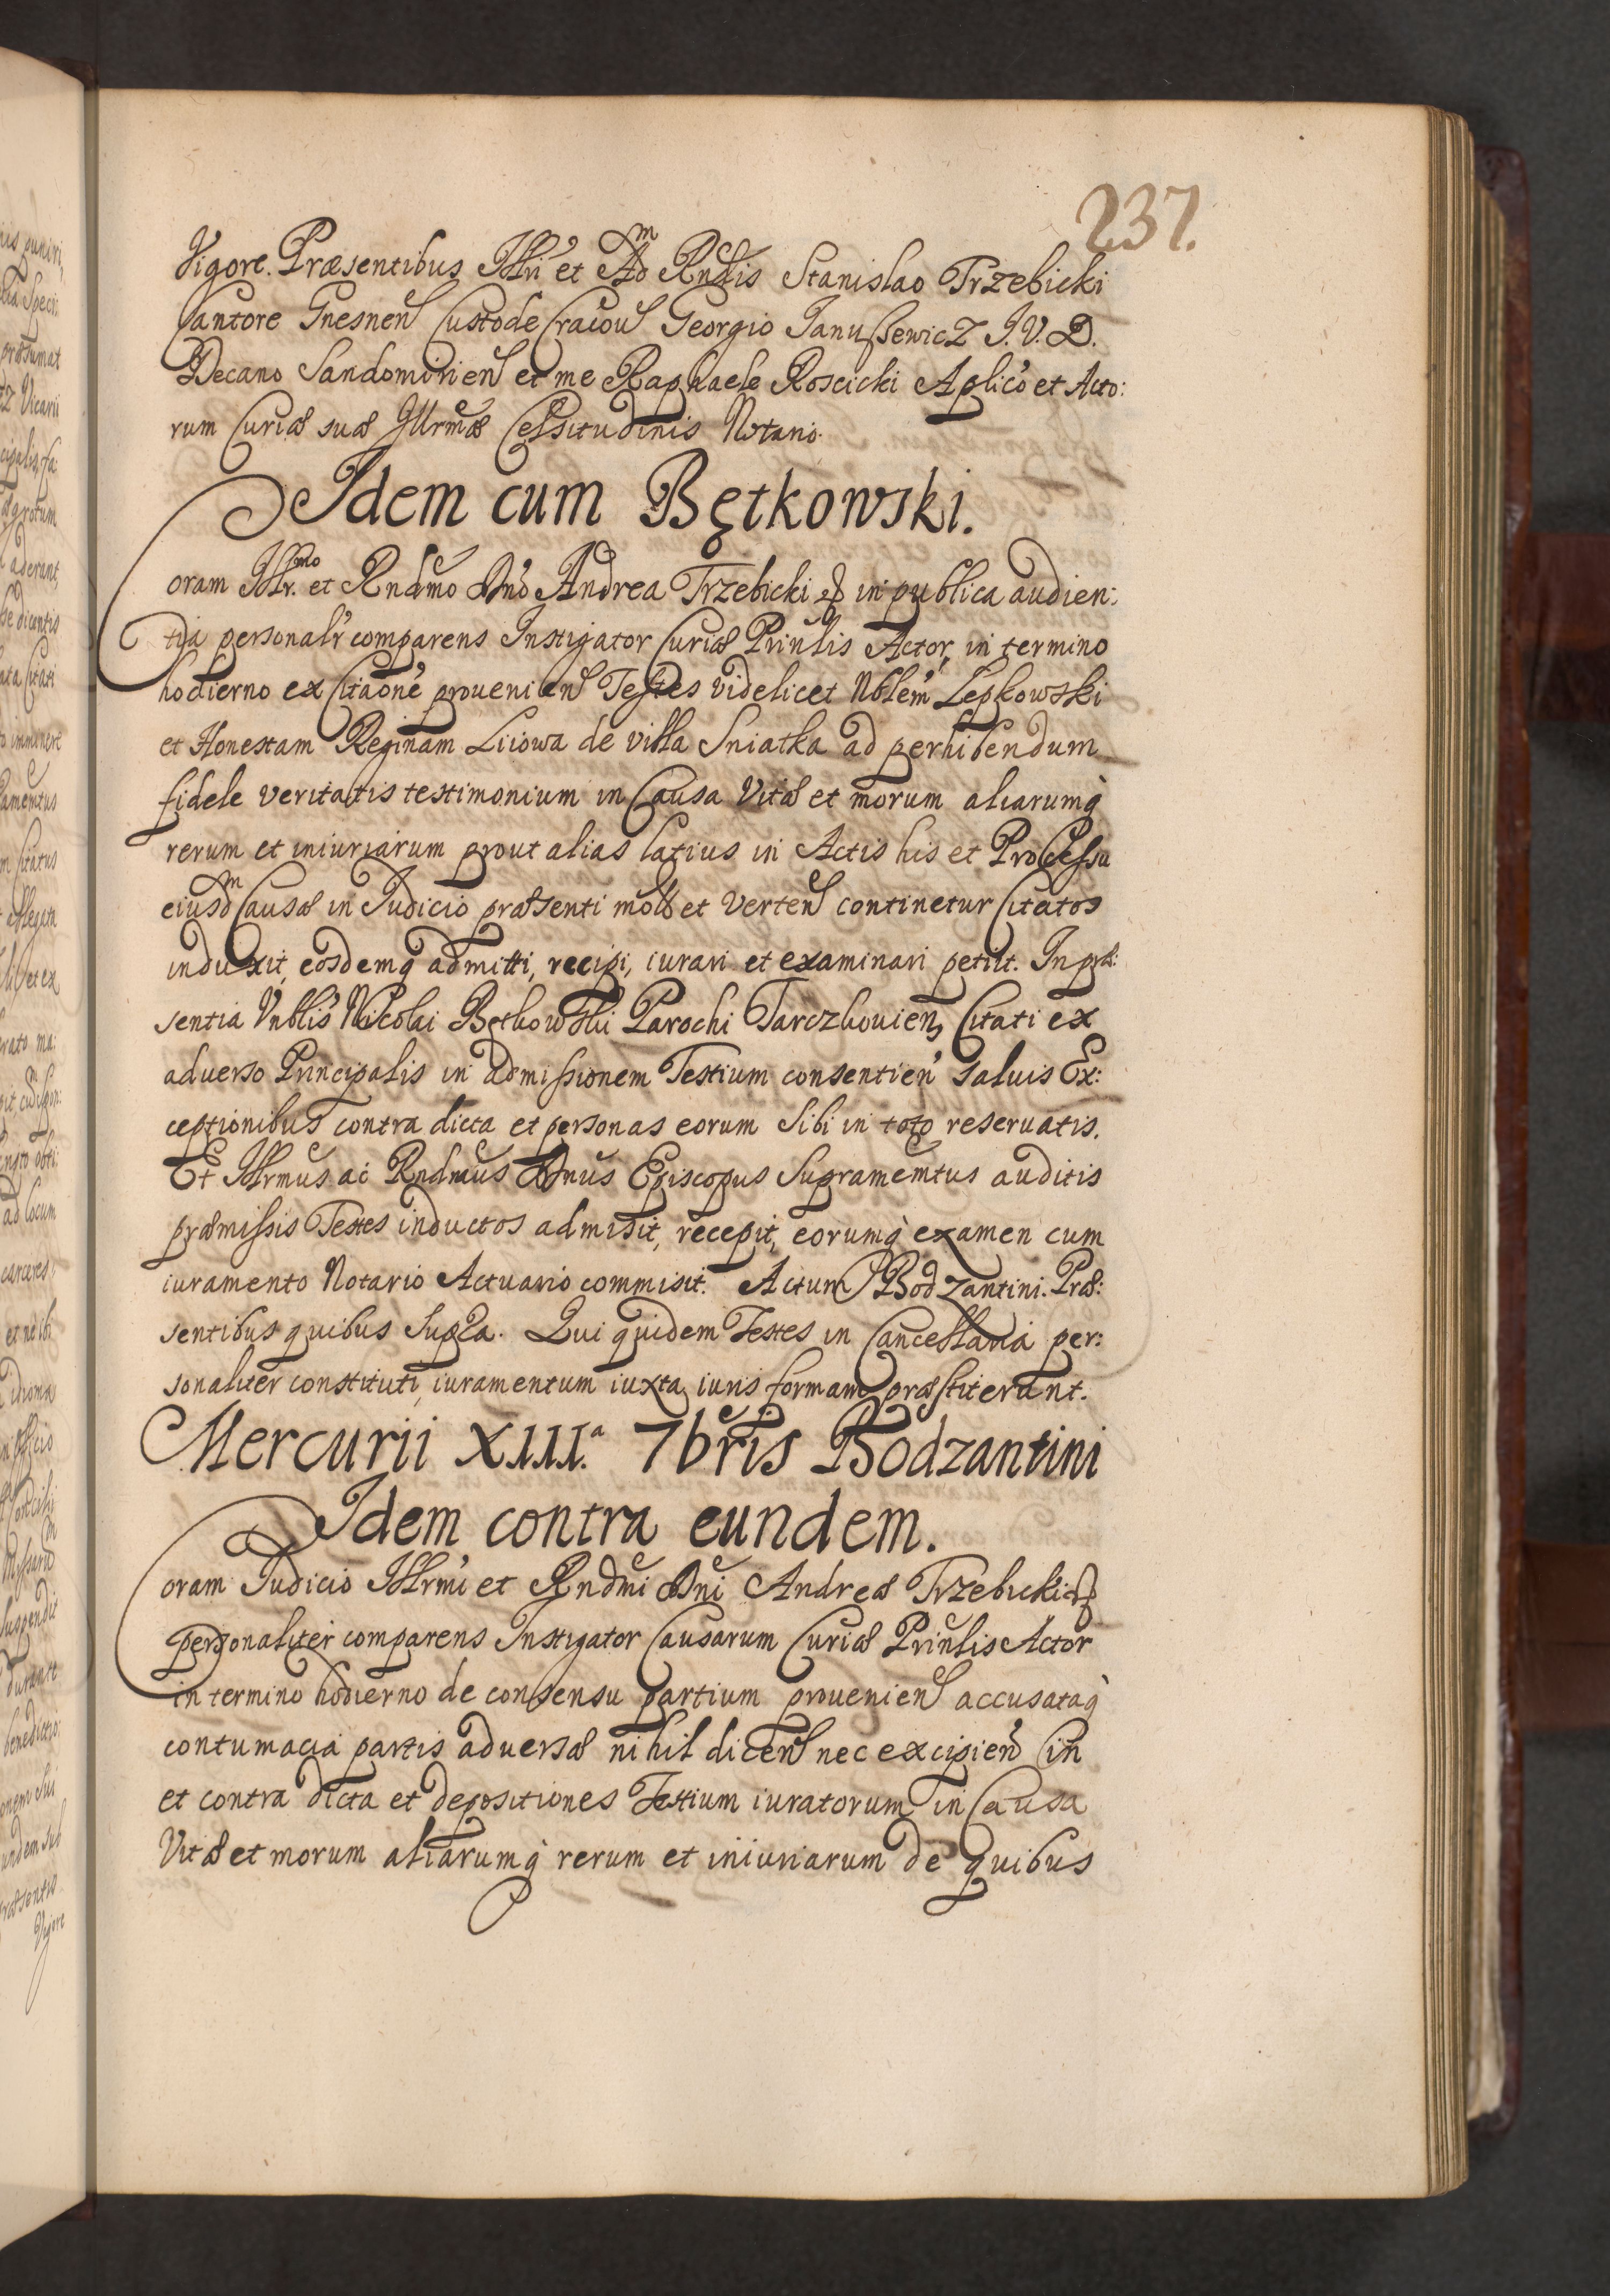 237.
Vigore. Præsentibus Illri et Adm Rndis Stanislao Trzebicki
Cantore Gnesnen Custode Cracou Georgio Janussewicz J. V. D.
Decano Sandomirien et me Raphaele Roscicki Aplico et Acto:
rum Curiæ suæ Illrmæ Celsitudinis Notario.
Idem cum Bętkowski.
Coram Illr.mo et Rndmo Dno Andrea Trzebicki etc in publica audien:
tia personalr comparens Instigator Curiæ Prinlis Actor, in termino
hodierno ex Citaone prouenien Testes videlicet Nblem Lepkowski
et Honestam Reginam Liiowa de villa Sniatka ad perhibendum
fidele veritatis testimonium in Causa Vitæ et morum aliarumq
rerum et iniuriarum prout alias latius in Actis his et Processu
eiusdm Causæ in Judicio præsenti mold et Verten continetur Citatos
induxit, eosdemq admitti, recipi, iurari et examinari petiit. In præ:
sentia Vnblis Nicolai Bętkowski Parochi Tarczkouien, Citati ex
aduerso Principalis in admissionem Testium consentien saluis Ex:
ceptionibus contra dicta et personas eorum sibi in toto reseruatis.
Et Illrmus ac Rndmus Dnus Episcopus Supramemtus auditis
præmissis Testes inductos admisit, recepit, eorumq examen cum
iuramento Notario Actuario commisit. Actum Bodzantini. Præ:
sentibus quibus Supra. Qui quidem Testes in Cancellaria per:
sonaliter constituti, iuramentum iuxta iuris formam præstiterunt.
Mercurii XIII.a 7bris Bodzantini
Idem contra eundem.
Coram Judicio Illrmi et Rndmi Dni Andreæ Trzebicki etc
personaliter comparens Instigator Causarum Curiæ Prinlis Actor
in termino hodierno de consensu partium prouenien accusataq
contumacia partis aduersæ nihil dicen nec excipien in
et contra dicta et depositiones Testium iuratorum in Causa
Vitæ et morum aliarumq rerum et iniuriarum de quibus